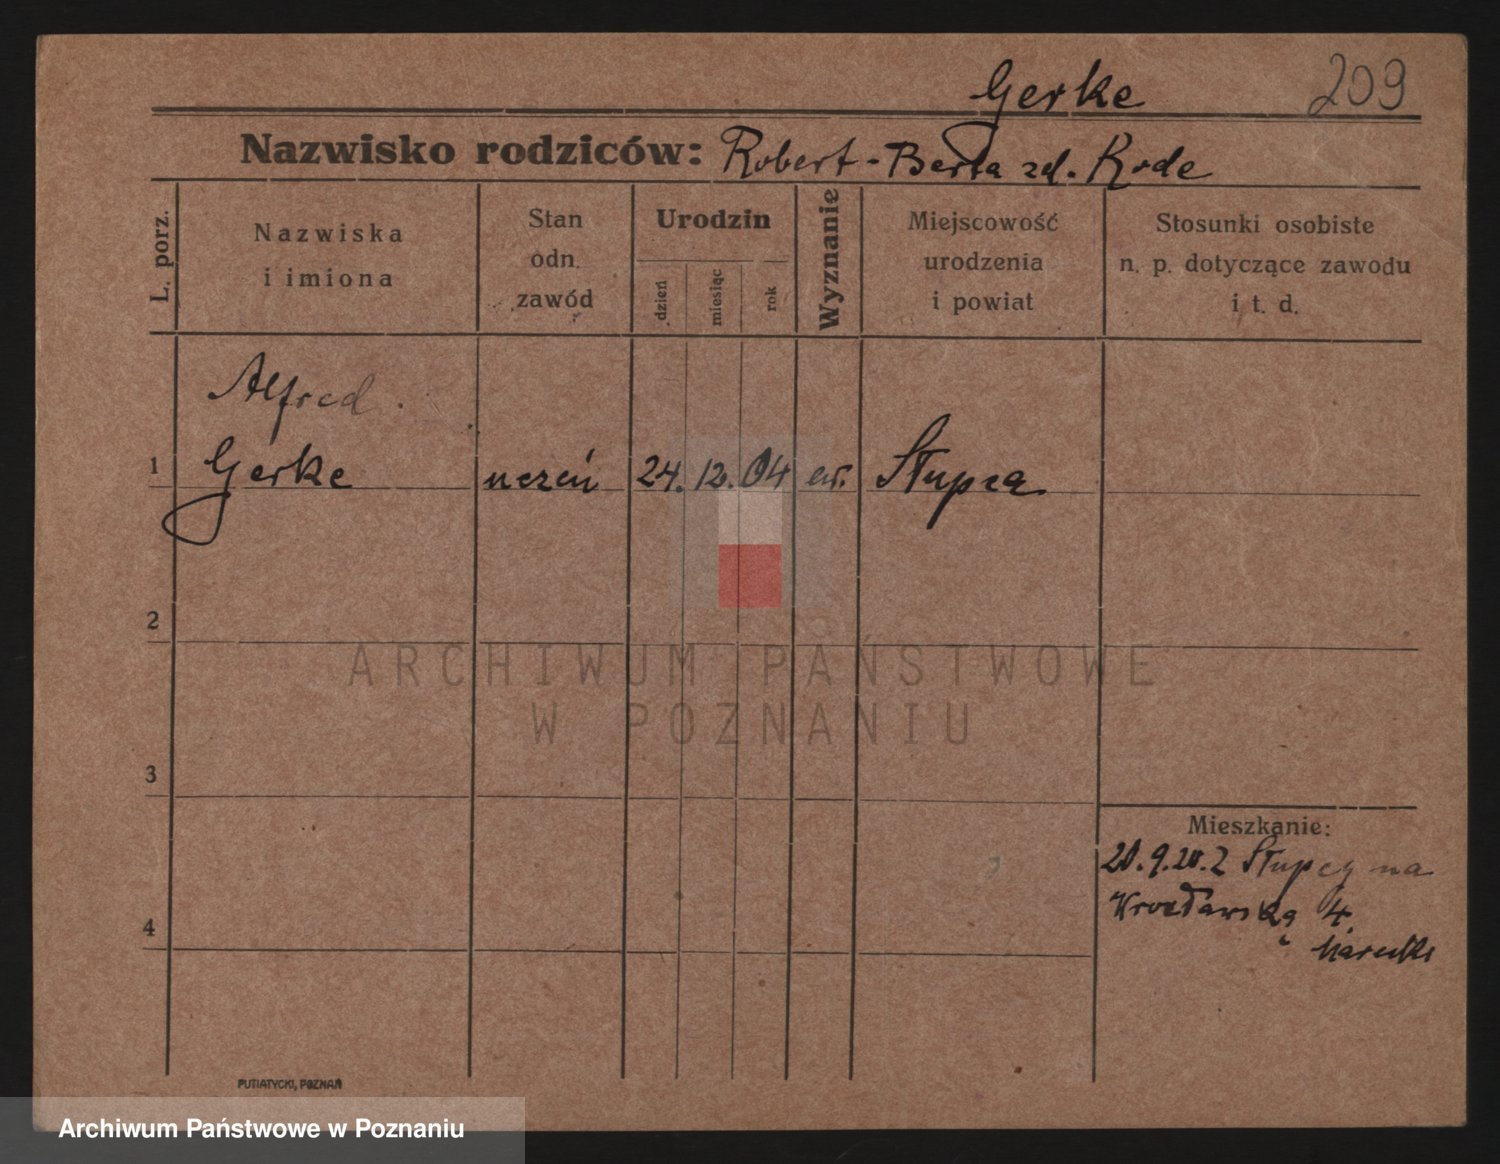 Gerke 209
Nazwisko rodziców: Robert - Berta zd. Rode
L. porz.
Nazwiska
i imiona
Stan
odn.
zawód
Urodzin
dzień
miesiąc
rok
Wyznanie
Miejscowość
urodzenia
i powiat
Stosunki osobiste
n. p. dotyczące zawodu
i t. d.
Alfred
1 Gerke uczeń 24. 12. 04 ew. Słupca
2
ARCHIWUM PAŃSTWOWE
W POZNANIU
3
Mieszkanie:
20.9.20. Z Słupcy na
Wrocławską 4.
4
PUTIATYCKI, POZNAŃ
Archiwum Państwowe w Poznaniu